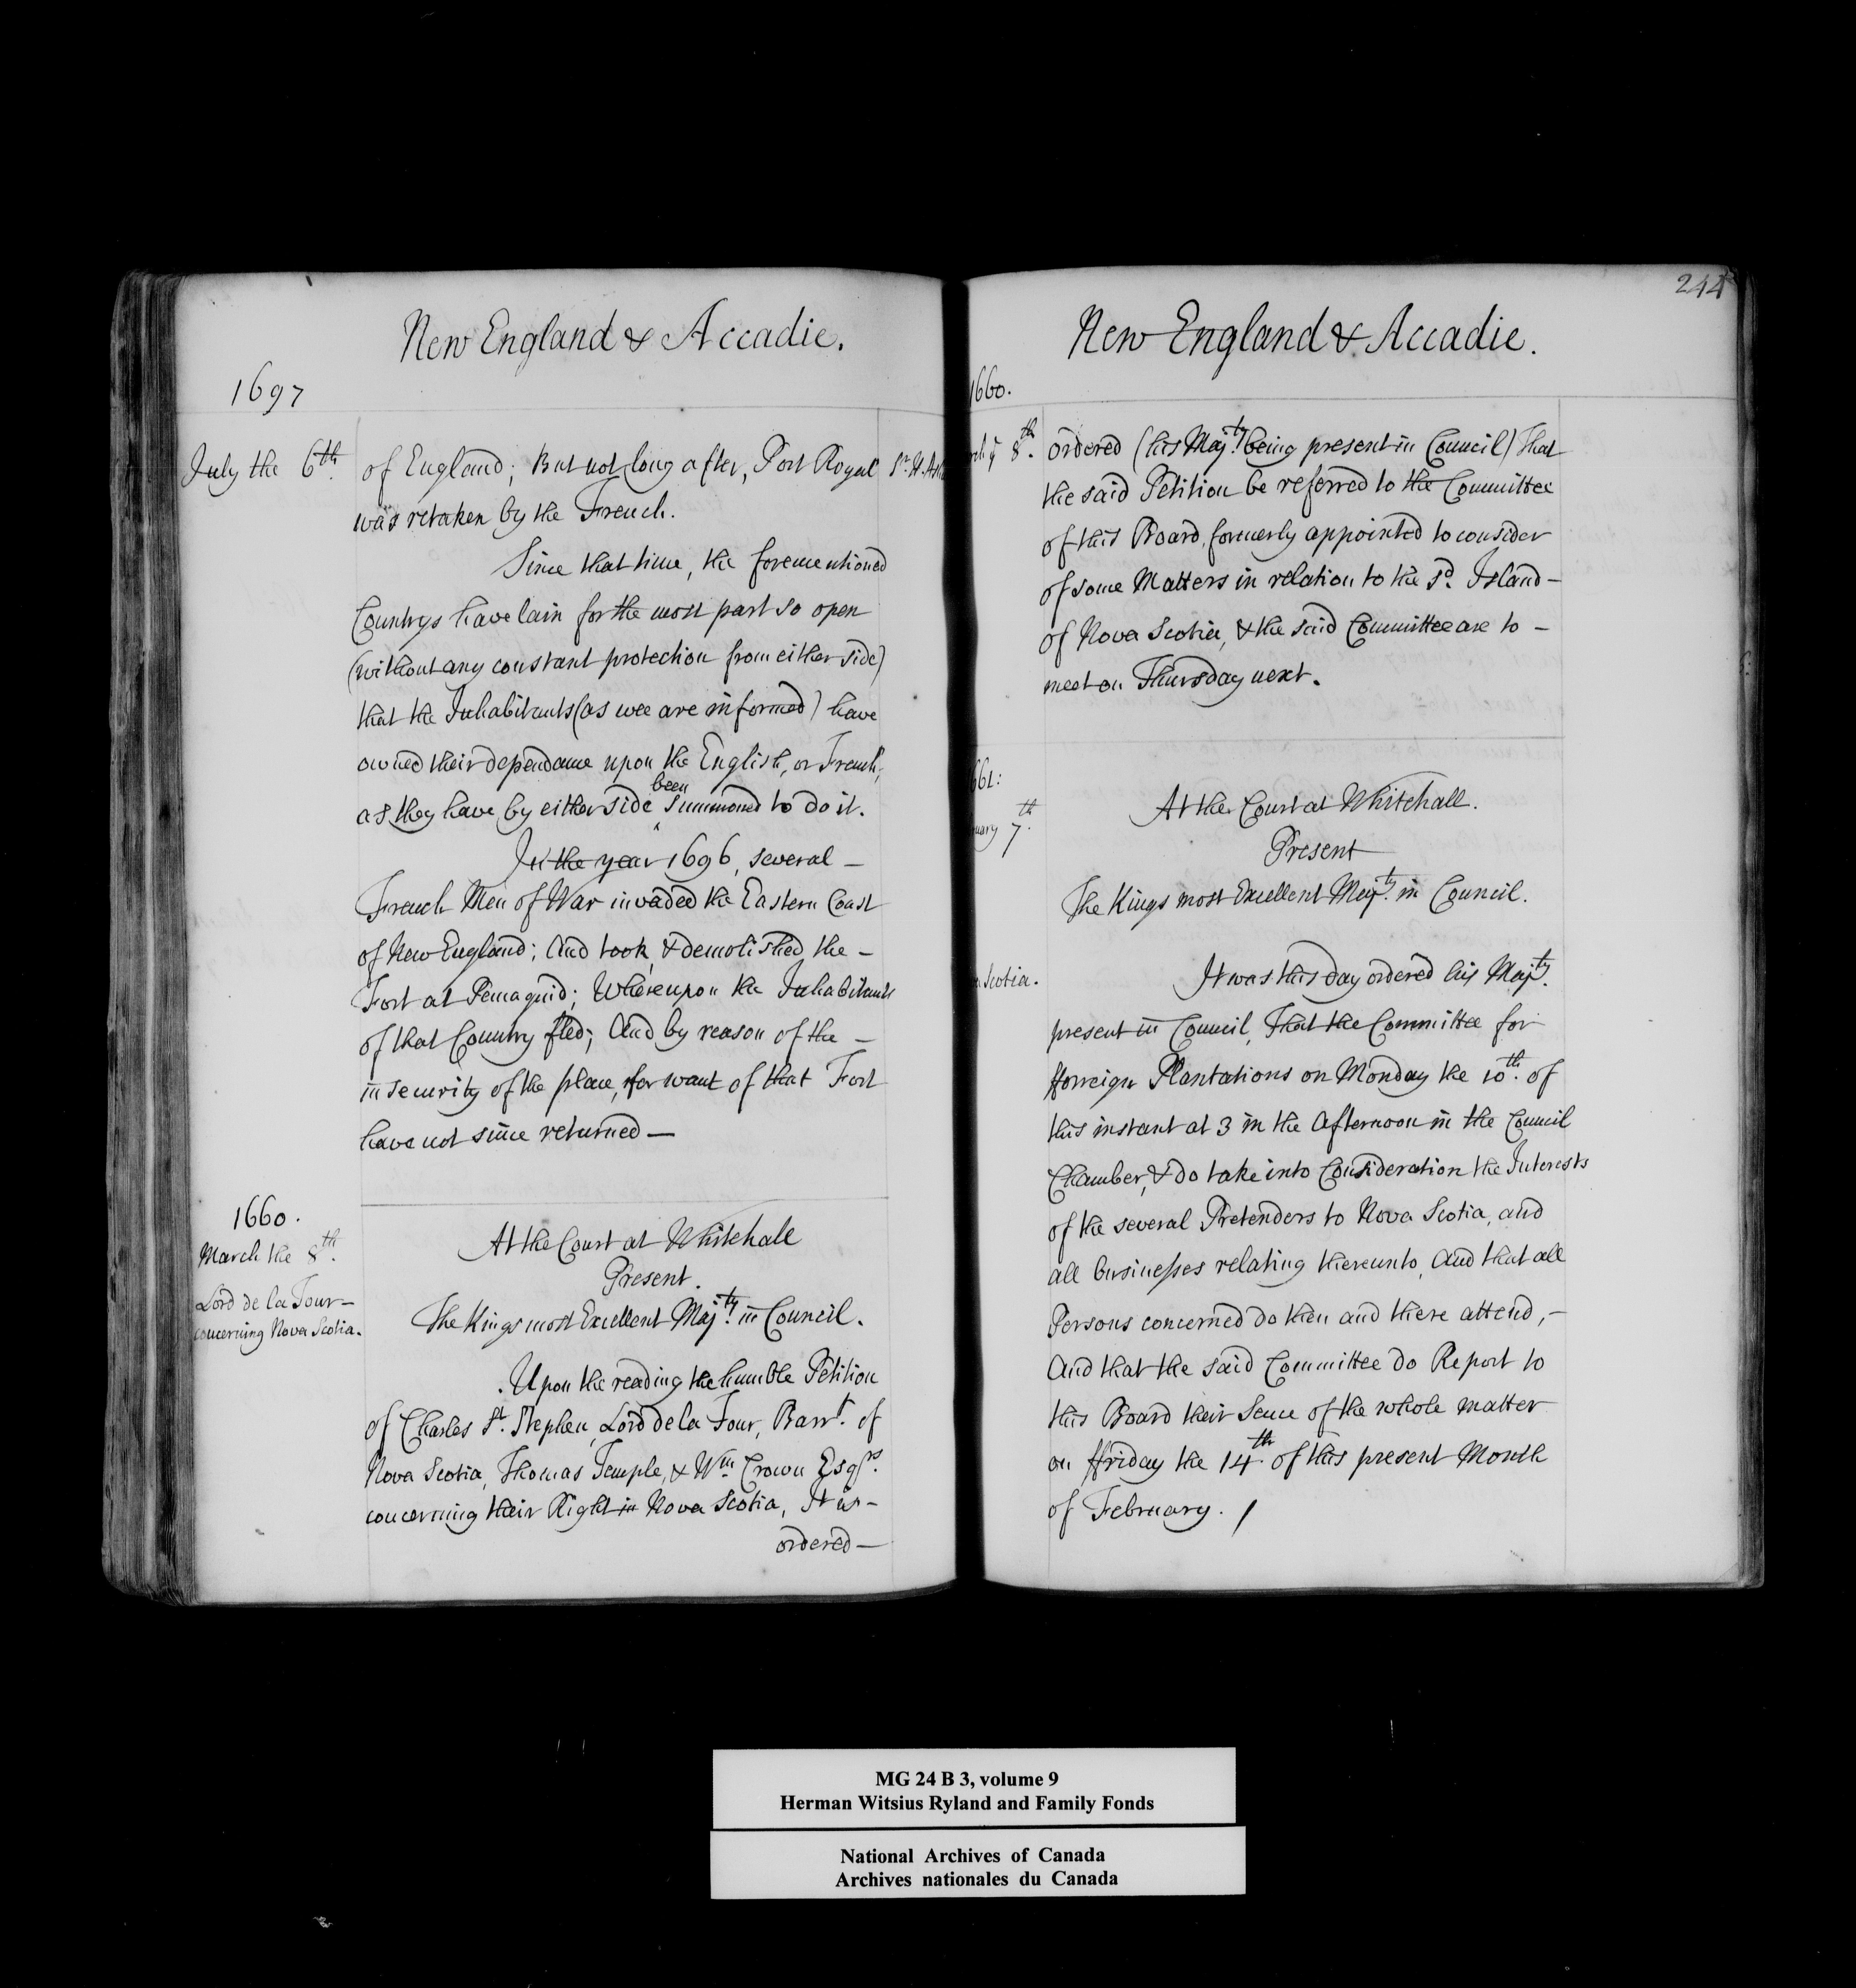 New England & Accadie.
1697
July the 6th.
of England; But not long after, Port Royal
was retaken by the French.
Since that time, the forementioned
Countrys have lain for the most part so open
(without any constant protection from either side)
that the Inhabitants (as wee are informed) have
owned their dependance upon the English, or French,
as they have by either side been summoned to do it.
In the year 1696, several –
French Men of War invaded the Eastern Coast
of New England; And took, & demolished the –
Fort at Pemaquid; Whereupon the Inhabitants
of that Country fled; And by reason of the –
insecurity of the place, for want of that Fort
have not since returned —
1660.
March the 8th.
Lord de la Tour –
concerning Nova Scotia.
At the Court at Whitehall
Present.
The Kings most Excellent Majty. in Council.
Upon the reading the humble Petition
of Charles St. Stephen, Lord de la Tour, Barrt. of
Nova Scotia, Thomas Temple, & Wm Crown Esqrs.
concerning their Right in Nova Scotia, It is –
ordered —
244
New England & Accadie.
1660.
8th.
ordered (his Majty. being present in Council) That
the said Petition be referred to the Committee
of this Board, formerly appointed to consider
of some Matters in relation to the sd. Island –
of Nova Scotia, & the said Committee are to –
meet on Thursday next.
661:
uary 7th.
At the Court at Whitehall.
Present
The Kings most Excellent Majty. in Council.
a Scotia.
It was this day ordered his Majty.
present in Council, That the Committee for
fforreign Plantations on Monday the 10th. of
this instant at 3 in the Afternoon in the Council
Chamber, & do take into Consideration the Interests
of the several Pretenders to Nova Scotia, and
all businesses relating thereunto, And that all
Persons concerned do then and there attend, –
And that the said Committee do Report to
this Board their Sence of the whole matter
on ffriday the 14th. of this present Month
of February. /
MG 24 B 3, volume 9
Herman Witsius Ryland and Family Fonds
National Archives of Canada
Archives nationales du Canada